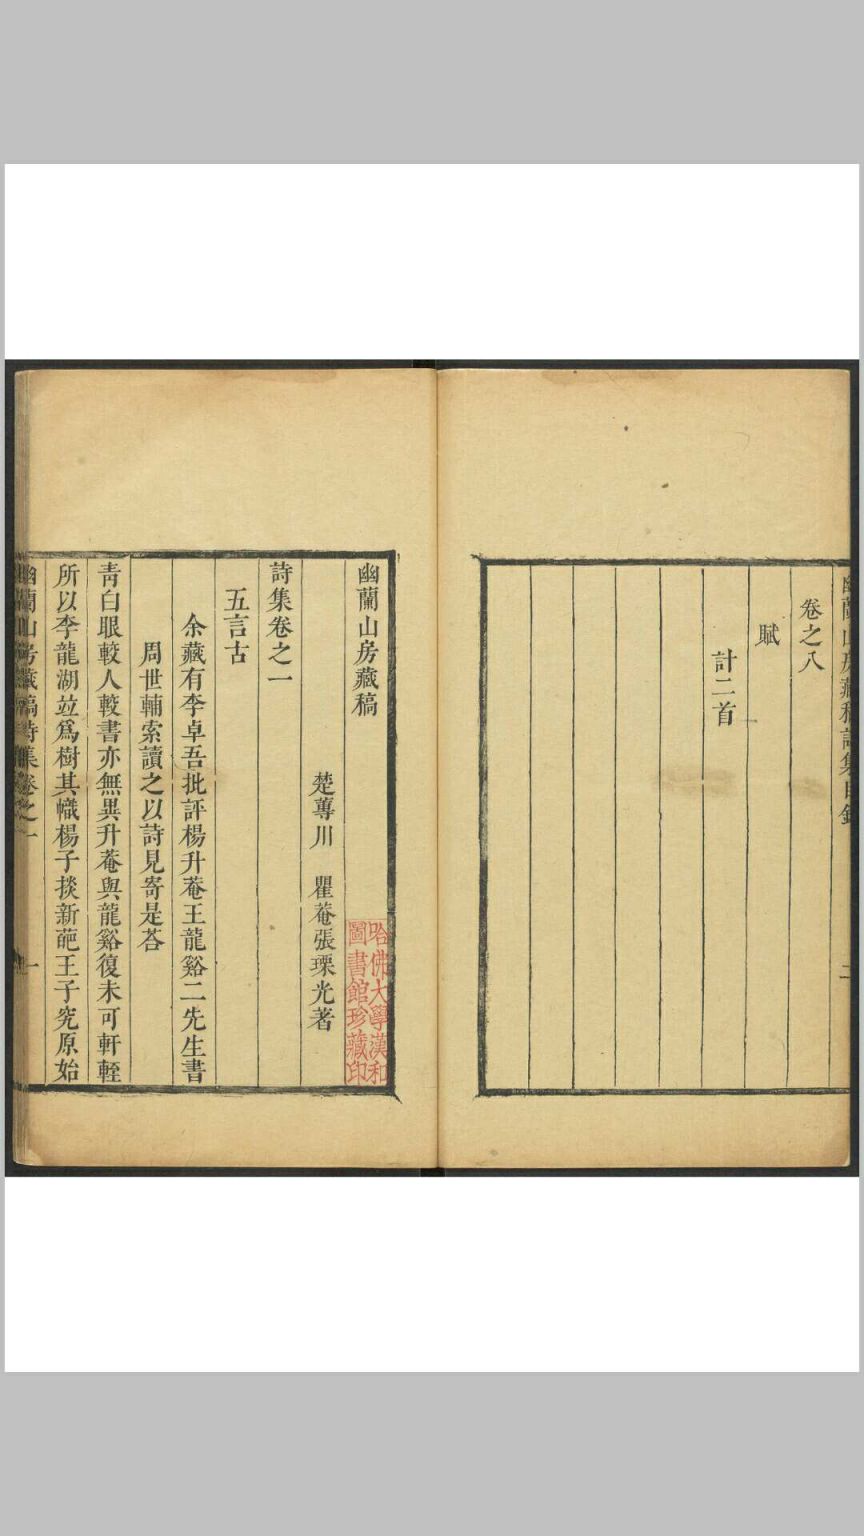 幽蘭山房藏稿詩集目錄
二
卷之八
賦
計二首
幽蘭山房藏稿
哈佛大學漢和
圖書館珍藏印
楚蓴川　瞿菴張瑮光著
詩集卷之一
五言古
余藏有李卓吾批評楊升菴王龍谿二先生書
周世輔索讀之以詩見寄是荅
青白眼較人較書亦無異升菴與龍谿復未可軒輊
所以李龍湖竝爲樹其幟楊子掞新葩王子究原始
幽蘭山房藏稿詩集卷之一
一